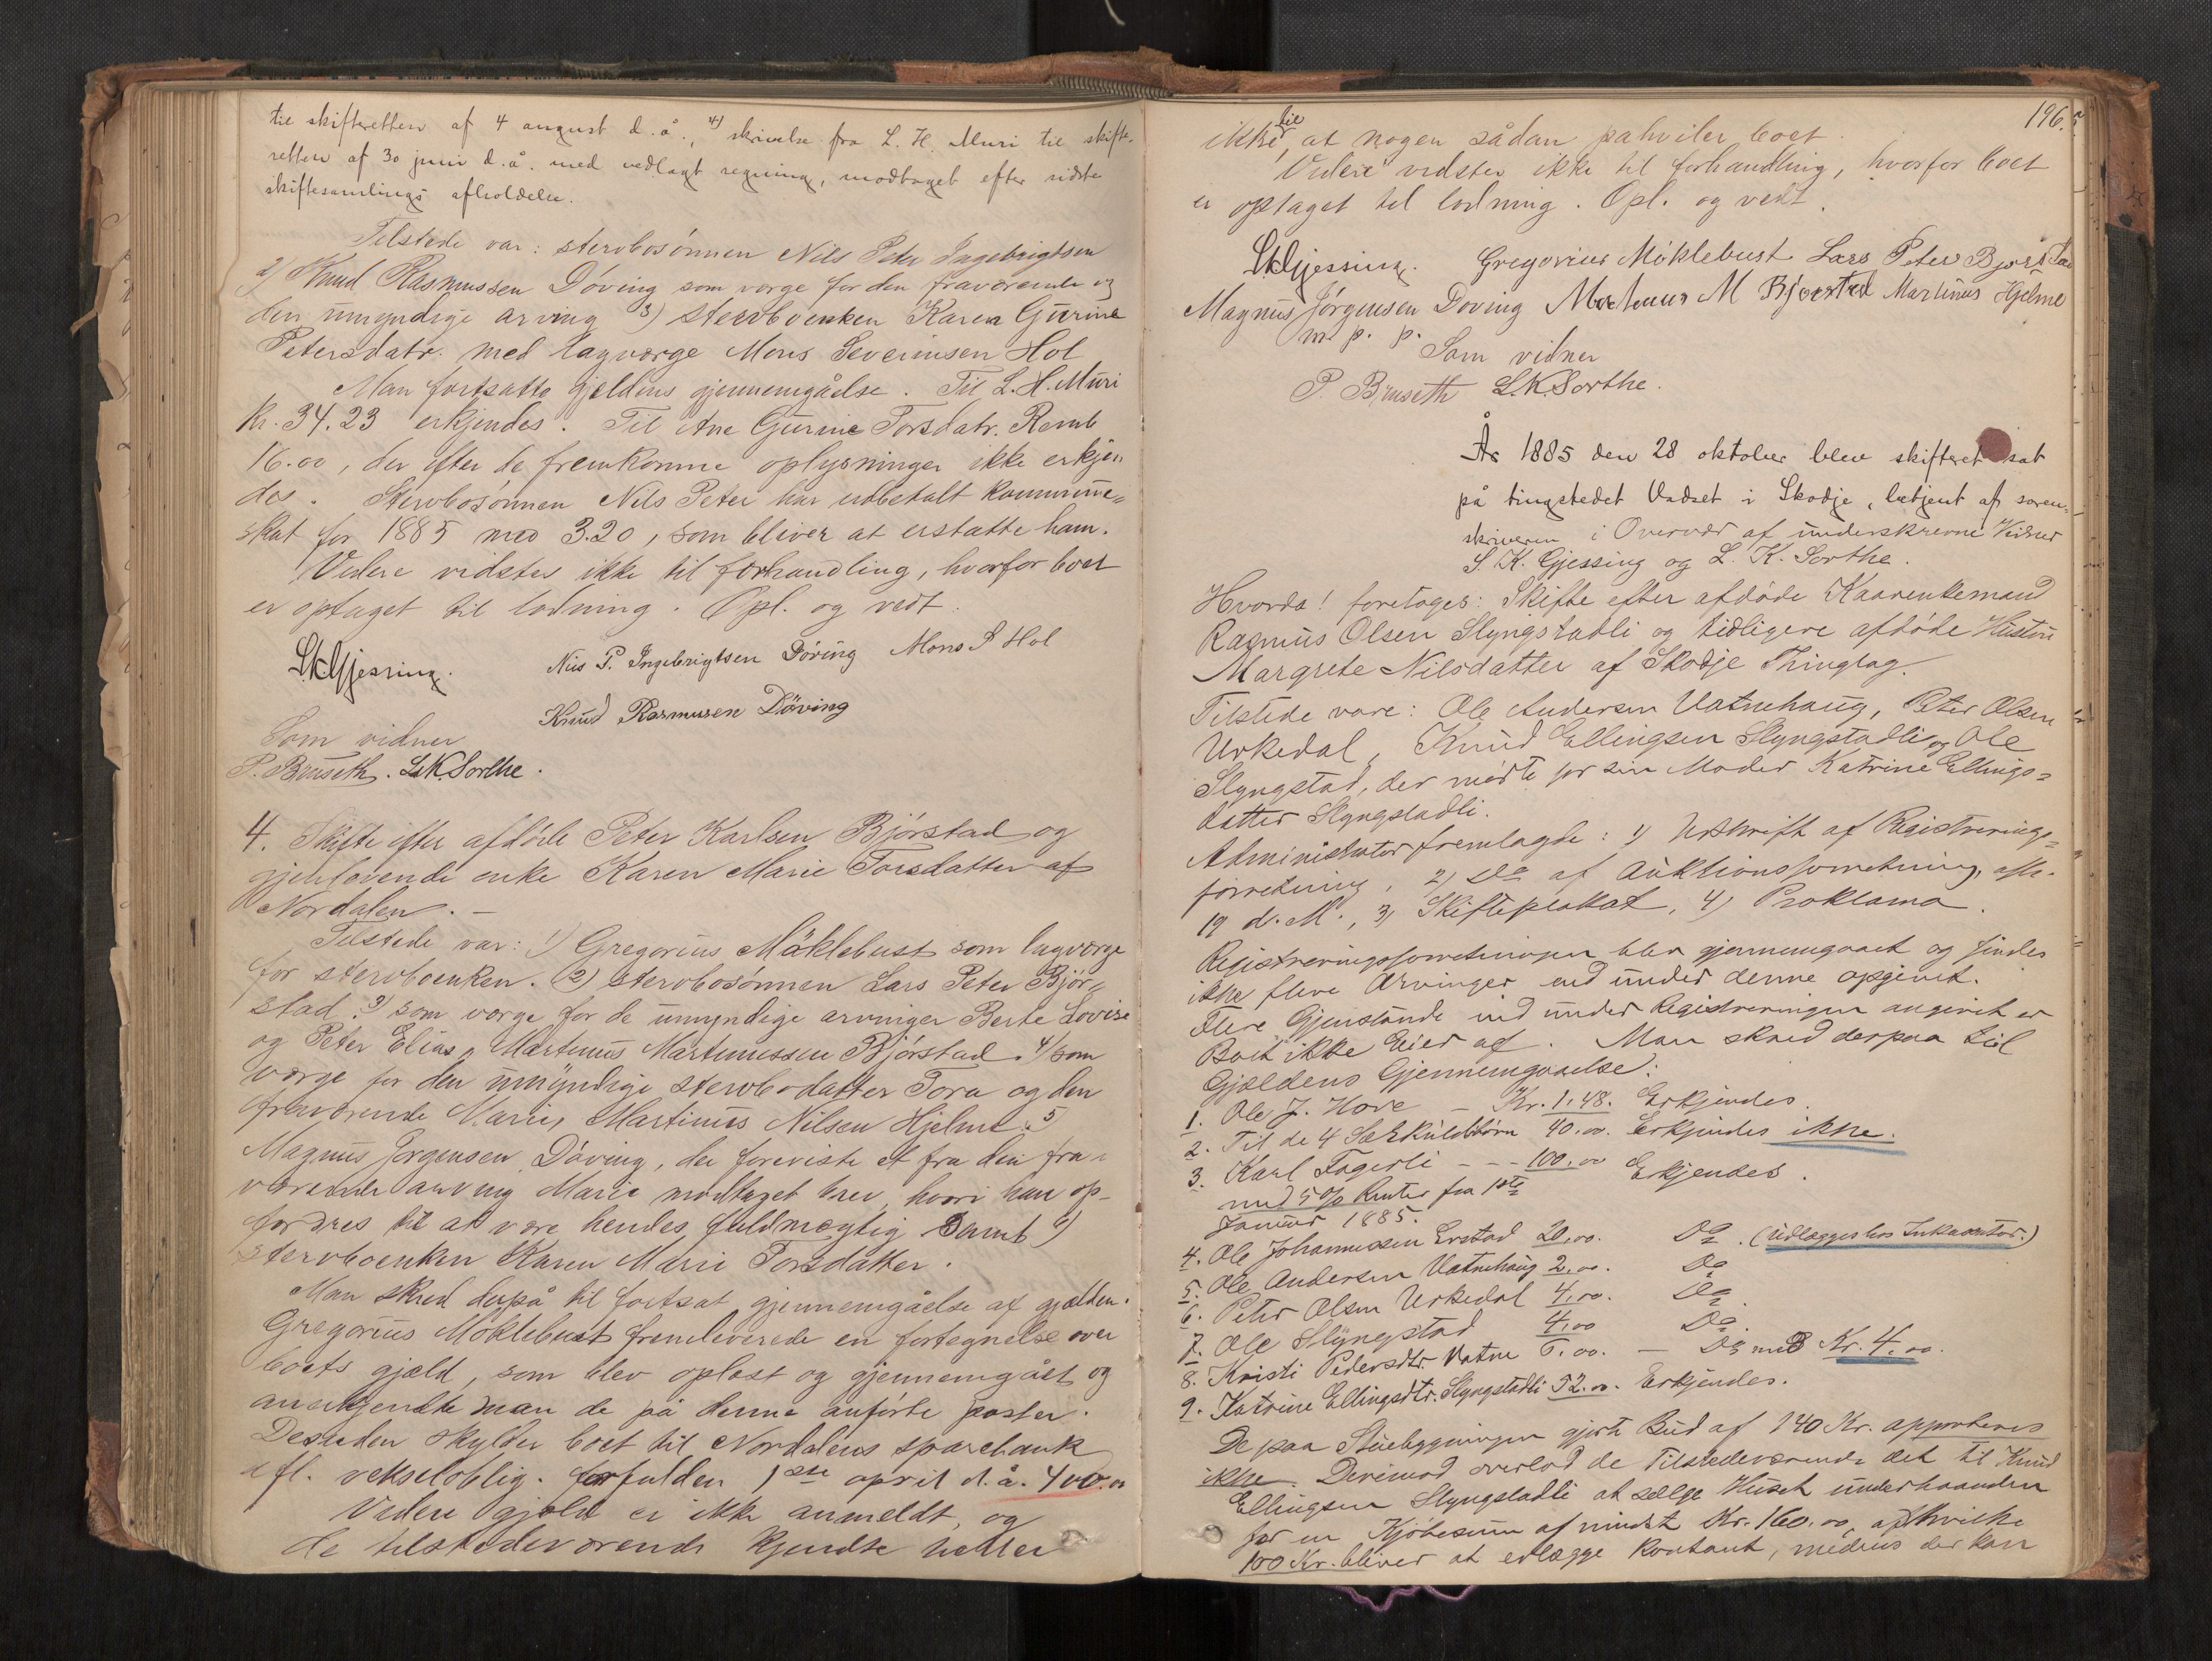 til skifteretten af 4 august d. å., 4) skrivelse fra L. H. Muri til skifte-
retten af 30 juni d.å. med vedlagt regning, modtaget efter sidste
skiftesamlings afholdelse.
Tilstede var: stervbosönnen Nils Peter Ingebrigtsen
2) Knud Rasmussen Döving som værge for den fraværende og
den umyndige arving 3) stervboenken Karen Gurine
Petersdatr. med lagværge Mons Severinsen Hol
Man fortsatte gjældens gjennemgåelse. Til L. H. Muri
kr. 34.23 erkjendes. Til Ane Gurine Torsdatr.
16.00, der efter de fremkomne oplysninger ikke erkjen
des. Stervbosönnen Nils Peter har udbetalt kommune=
skat for 1885 med 3.20, som bliver at erstatte ham.
Videre vidstes ikke til forhandling, hvorfor boet
er optaget til lodning. Opl. og vedt.
SKGjessing. Nils P. Ingebrigtsen Döving Mons S Hol
Knud Rasmusen Döving
Som vidner
P. Bruseth. L.K. Sorthe.
4. Skifte efter afdöde Peter Karlsen Björstad og
gjenlevende enke Karen Marie Torsdatter af
Nordalen. –
Tilstede var: 1) Gregorius Möklebust som lagværge
for stervboenken. 2) stervbosönnen Lars Peter Bjør=
stad. 3) som værge for de umyndige arvinger Berte Lovise
og Peter Elias, Martinus Martinussen Björstad. 4) som
værge for den umyndige stervbodatter Tora og den
fraværende Marie, Martinus Nilsen Hjelme. 5
Magnus Jörgensen Döving, der foreviste et fra den fra=
værende arving Marie modtaget brev, hvori han op-
fordres til at være hendes fuldmægtig samt 6)
stervboenken Karen Marie Torsdatter.
Man skred derpå til fortsat gjennemgåelse af gjælden.
Gregorius Möklebust fremleverede en fortegnelse over
boets gjæld, som blev oplæst og gjennemgået og
anerkjendte man de på denne anförte poster.
Desuden skylder boet til Nordalens sparebank
ifl. vekseloblig. forfalden 1ste april d.å. 400.00
Videre gjæld er ikke anmeldt, og
de tilstedeværende kjendte heller
196.
ikke til, at nogen sådan påhviler boet.
Videre vidstes ikke til forhandling, hvorfor boet
er optaget til lodning. Opl. og vedt.
SKGjessing. Gregorius Möklebust Lars Peter Björstad
Magnus Jörgensen Doving Martinus M Björstad Martinus Hjelme
m. p. p.
Som vidner
P. Bruseth L.K. Sorthe.
År 1885 den 28 oktober blev skifteret sat
på tingstedet Vadset i Skodje, betjent af soren=
skriveren i Overvær af underskrevne Vidner
S. K. Gjessing og L. K. Sorthe.
Hvorda! foretoges: Skifte efter afdöde Kaarenkemand
Rasmus Olsen Slyngstadli og tidligere afdöde Hustru
Margrete Nilsdatter af Skodje Thinglag.
Tilstede vare: Ole Andersen Vatnehaug, Peter Olsen
Urkedal, Knud Ellingsen Slyngstadli og Ole
Slyngstad, der mödte for sin Moder Katrine Ellings=
datter Slyngstadli.
Administrator fremlagde: 1) Udskrift af Registrerings=
forretning, 2) Do af Auktionsforretning, afh.
19 d. M., 3) Skifteplakat, 4) Proklama.
Registreringsforretningen blev gjennemgaaet og findes
ikke flere Arvinger end under denne opgivet.
Flere Gjenstande end under Registreringen angivet er
Boet ikke Eier af. Man skred derpaa til
Gjældens Gjennemgaaelse:
1. Ole J. Hove – Kr. 1.48. Erkjendes.
2. Til de 4 Særkuldbörn 40.00. Erkjendes ikke.
3. Karl Fagerli - - - 100.00 Erkjendes.
med 5 o/o Renter fra 1ste
Januar 1885.
4. Ole Johannessen Erstad 20.00. Do. (Udlægges hos Inkassator.)
5. Ole Andersen Vatnehaug 2.00. Do
6. Peter Olsen Urkedal 4.00. Do
7. Ole Slyngstad 4.00 Do.
8. Kristi Pedersdtr. Vatne 6.00. – Do med Kr. 4.00.
9. Katrine Ellingsdtr. Slyngstadli 52.00. Erkjendes.
De paa Stuebygningen gjorte Bud af 140 Kr. approberes
ikke. Derimod overlod de Tilstedeværende det til Knud
Ellingsen Slyngstadli at sælge Huset underhaanden
for en Kjöbesum af mindst Kr. 160.00, af hvilke
100 Kr. bliver at erlægge kontant, medens der kan